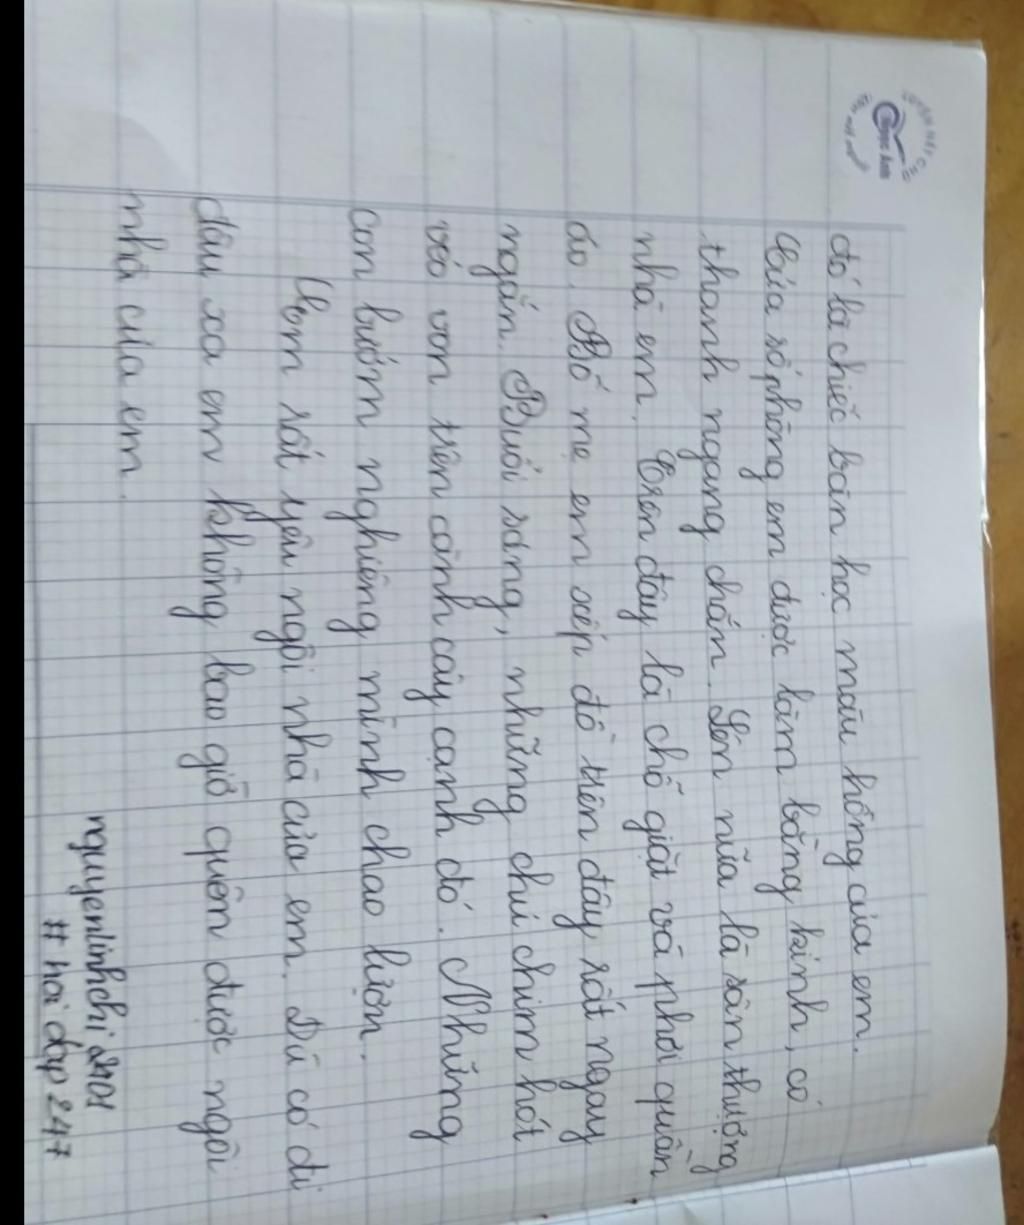 LUYỆN NÉT CHỮ
Ngọc Ánh
đó là chiếc bàn học màu hồng của em.
Cửa sổ phòng em được làm bằng kính, có
thanh ngang chắn. Lên nữa là sân thượng
nhà em. Trên đây là chỗ giặt và phơi quần
áo. Bố mẹ em xếp đồ trên đây rất ngay
ngắn. Buổi sáng, những chú chim hót
véo von trên cành cây cạnh đó. Những
con bướm nghiêng mình chao lượn.
Em rất yêu ngôi nhà của em. Dù có đi
đâu xa em không bao giờ quên được ngôi
nhà của em.
nguyenlinhchi 2101
# hoi dap 247